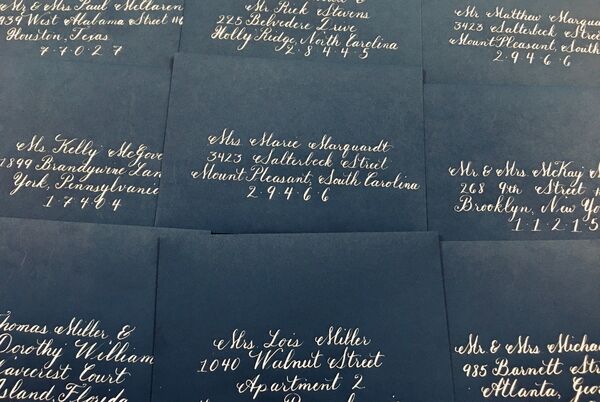 Mr & Mrs Paul McLaren
West Alabama Street
Houston, Texas
77027
Mr Rick Stevens
225 Belvedere Drive
Holly Ridge, North Carolina
28445
Mr Matthew
3423 Salterbeck
Mount Pleasant, South
29466
Ms Kelly
1899 Brandywine
York, Pennsylvania
17404
Mrs Marie Marquardt
3423 Salterbeck Street
Mount Pleasant, South Carolina
29466
Mr & Mrs McKay
268 9th Street
Brooklyn, New
11215
Thomas Miller &
Dorothy William
Court
Island, Florida
Mrs Lois Miller
1040 Walnut Street
Apartment 2
Mr & Mrs
985 Barnett
Atlanta,